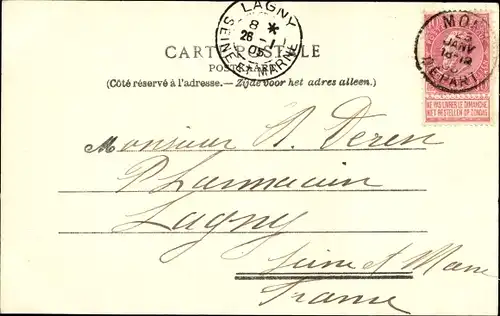 LAGNY
8 *
26 -1-
05
SEINE ET MARNE
MON
25
JANV
18-19
DEPART
CARTE POSTALE
POSTKAART
(Côté réservé à l'adresse. — Zijde voor het adres alleen.)
NE PAS LIVRER LE DIMANCHE
NIET BESTELLEN OP ZONDAG
Monsieur A. Deren
Pharmacien
Lagny
Seine et Marne
France